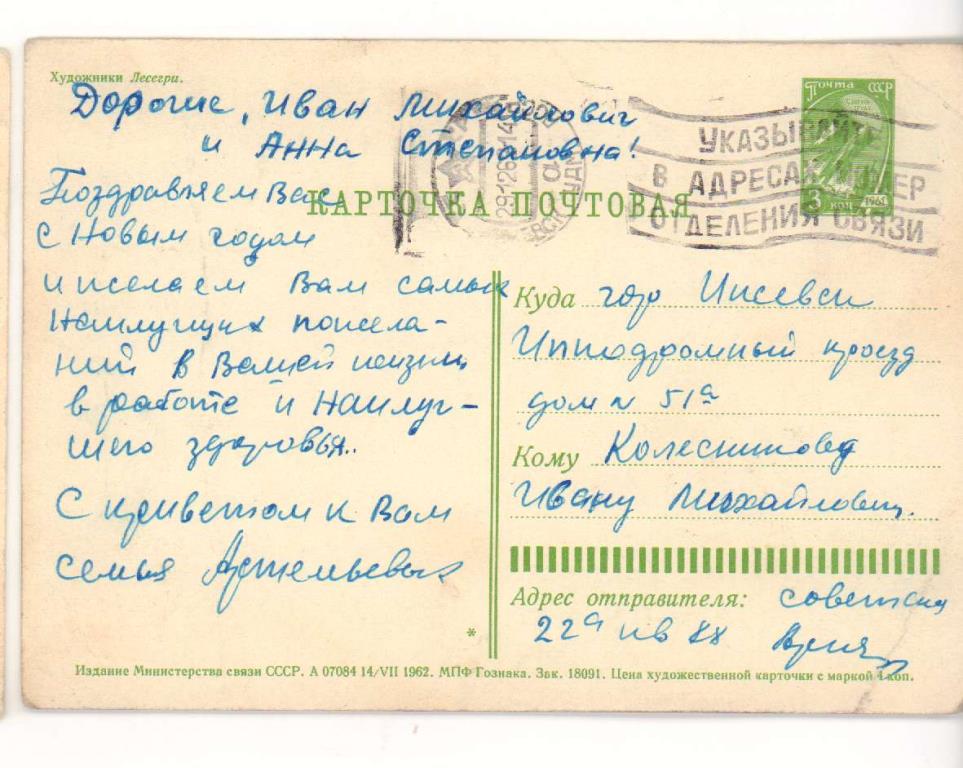 Художники Лесегри.
Дорогие, Иван Михайлович
и Анна Степановна!
Поздравляем Вас
с Новым годом
и желаем Вам самых
Наилучших пожела-
ний в Вашей жизни
в работе и Наилуч-
шего здоровья..
С приветом к Вам
семья
КАРТОЧКА ПОЧТОВАЯ
Почта СССР
3 коп. 1961
УКАЗЫВАЙТЕ
В АДРЕСАХ НОМЕР
ОТДЕЛЕНИЯ СВЯЗИ
Куда гор Ижевск
Ипподромный проезд
дом № 51а
Кому Колесникову
Ивану Михайлович.
Адрес отправителя: советская
22а кв 88
*
Издание Министерства связи СССР. А 07084 14/VII 1962. МПФ Гознака. Зак. 18091. Цена художественной карточки с маркой 4 коп.